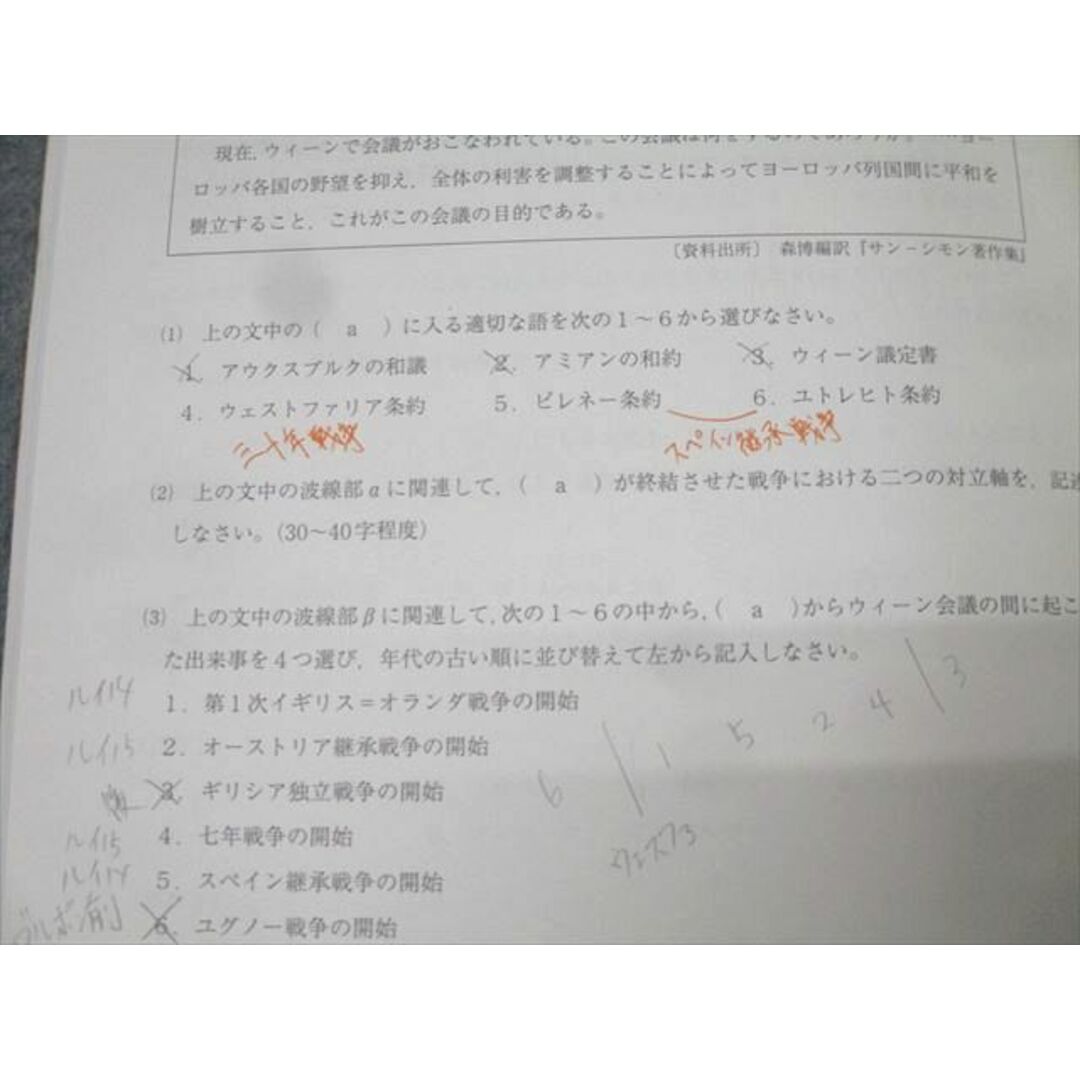 現在,ウィーンで会議がおこなわれている。この会議は何をするのであろうか。
ロッパ各国の野望を抑え,全体の利害を調整することによってヨーロッパ列国間に平和を
樹立すること,これがこの会議の目的である。
〔資料出所〕 森博編訳『サン-シモン著作集』
(1) 上の文中の( a )に入る適切な語を次の1~6から選びなさい。
1. アウクスブルクの和議 2. アミアンの和約 3. ウィーン議定書
4. ウェストファリア条約 5. ピレネー条約 6. ユトレヒト条約
三十年戦争 スペイン継承戦争
(2) 上の文中の波線部αに関連して,( a )が終結させた戦争における二つの対立軸を,記述
しなさい。(30~40字程度)
(3) 上の文中の波線部βに関連して,次の1~6の中から,( a )からウィーン会議の間に起こ
た出来事を4つ選び,年代の古い順に並び替えて左から記入しなさい。
ルイ14 1. 第1次イギリス=オランダ戦争の開始
6 | 1 5 2 4 | 3
ルイ15 2. オーストリア継承戦争の開始
3. ギリシア独立戦争の開始
ルイ15 4. 七年戦争の開始
ルイ14 5. スペイン継承戦争の開始
ブルボ前 6. ユグノー戦争の開始